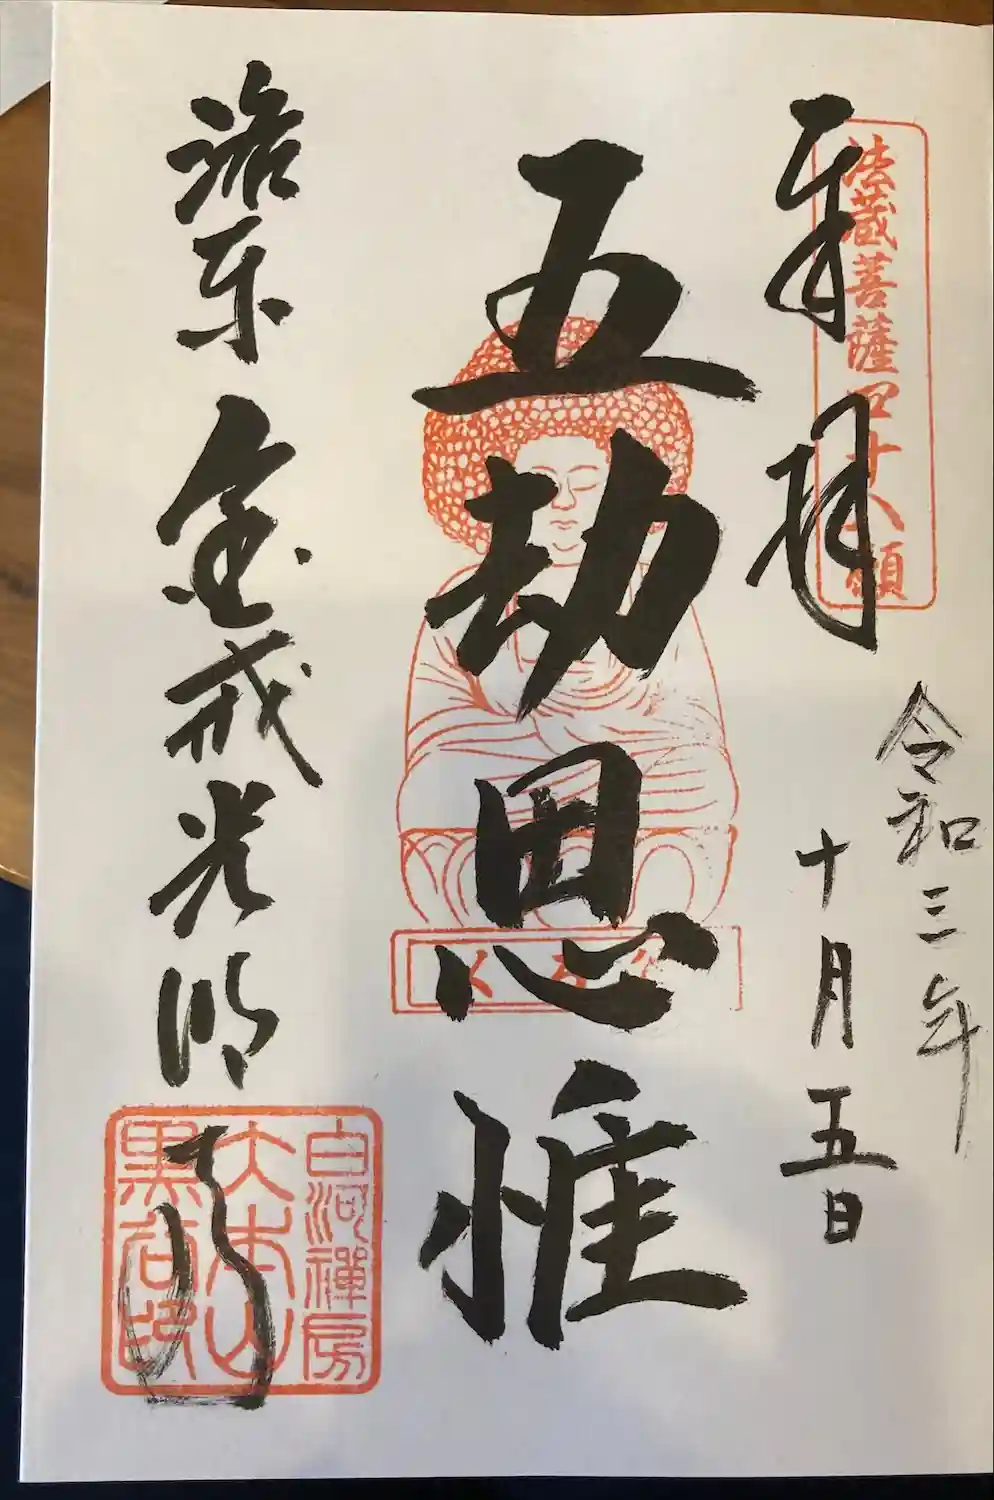 奉拝
法蔵菩薩四十八願
令和三年
十月五日
五劫思惟
洛東 金戒光明寺
白河禅房
大本山
黒谷印